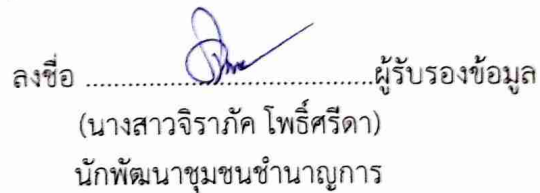 ลงชื่อ ........................................ผู้รับรองข้อมูล
(นางสาวจิราภัค โพธิ์ศรีดา)
นักพัฒนาชุมชนชำนาญการ